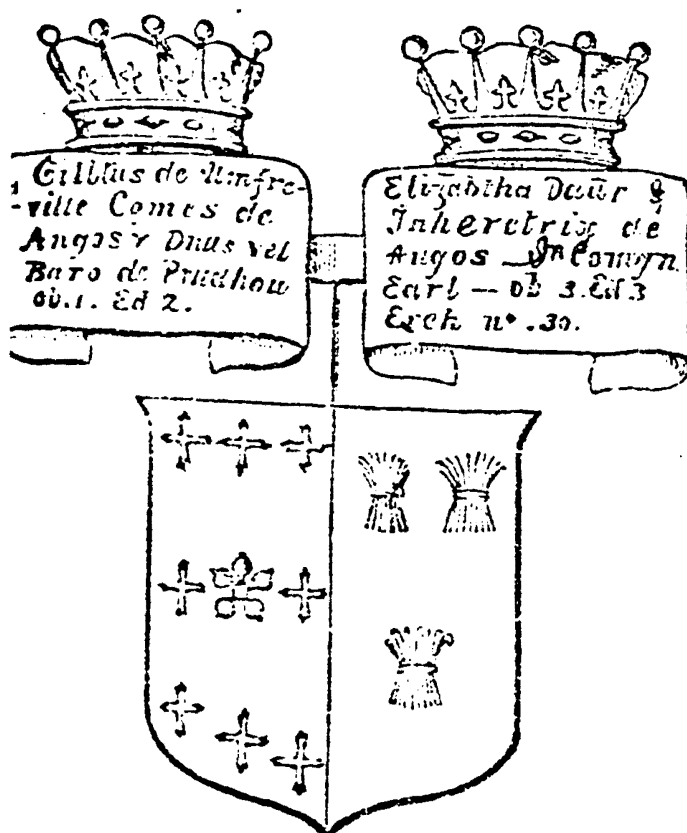 Gilb'us de Umfre-
-ville Comes de
Angos v Dnus vel
Baro de Prudhou
ob. 1. Ed 2.
Elizabtha Daur &
Inheretrix de
Angos Jn Comyn
Earl — Ob 3. Ed 3
Esch nº . 30.